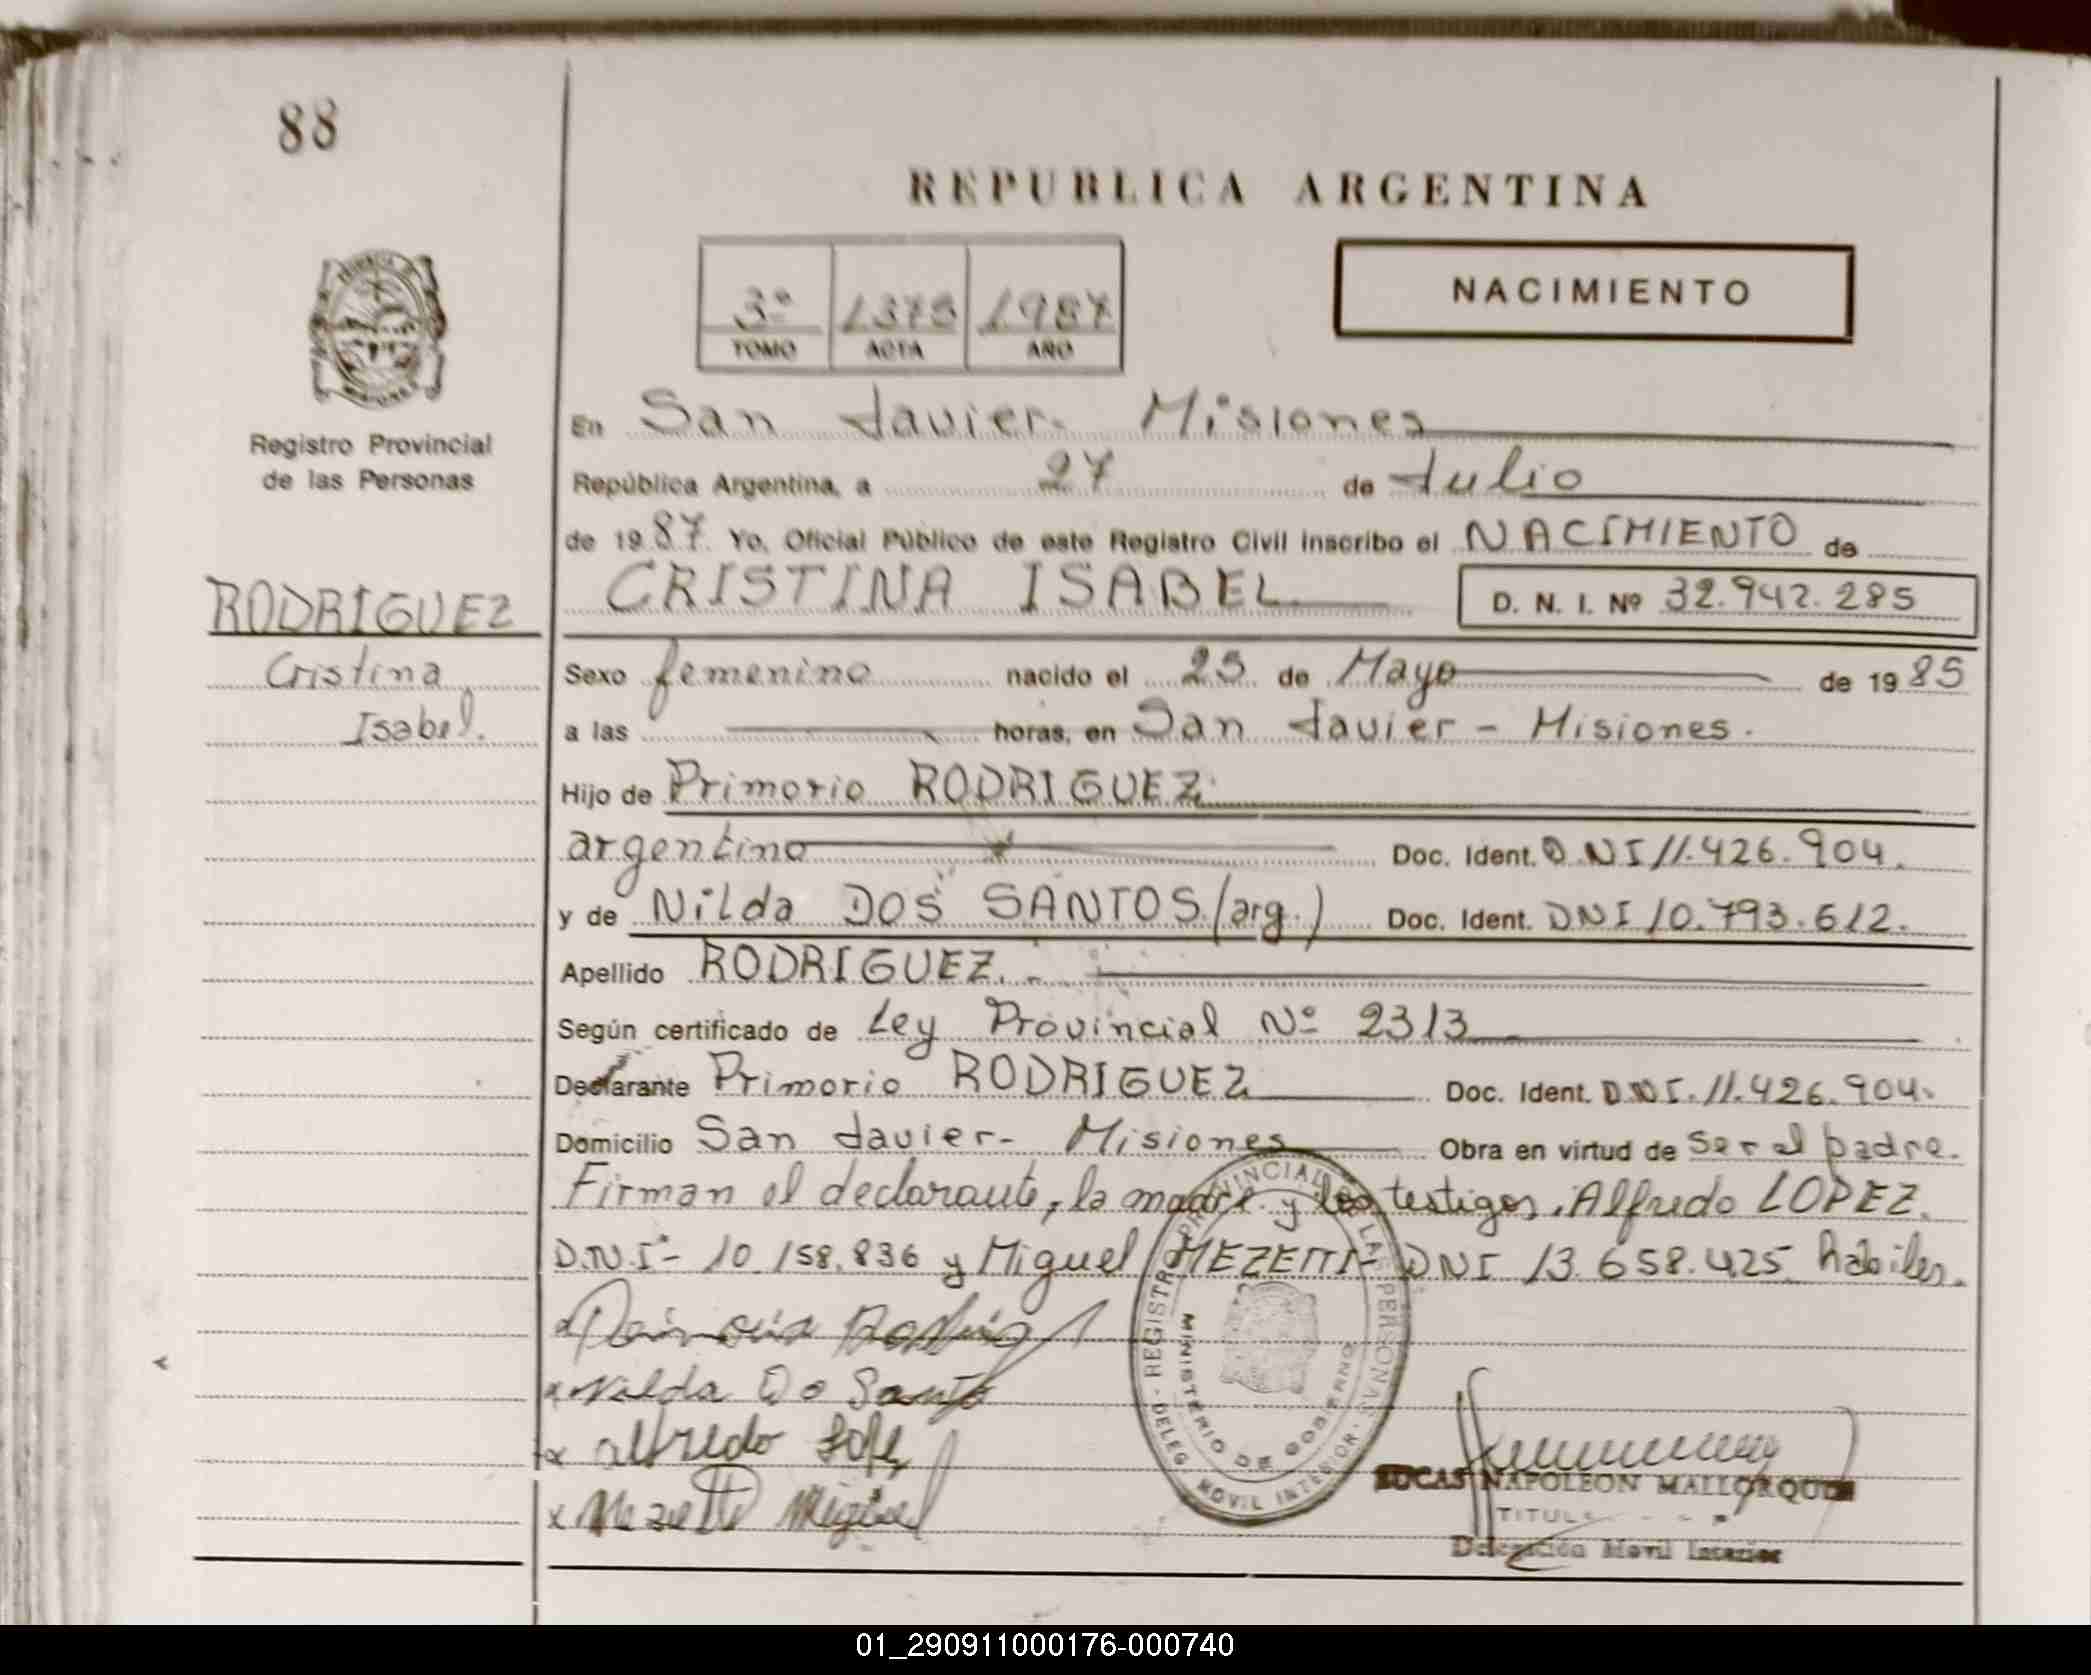 88
REPUBLICA ARGENTINA
3º 1375 1987
TOMO ACTA AÑO
NACIMIENTO
Registro Provincial
de las Personas
En San Javier - Misiones
República Argentina, a 27 de Julio
de 1987. Yo, Oficial Público de este Registro Civil inscribo el NACIMIENTO de
CRISTINA ISABEL D. N. I. Nº 32.942.285
RODRIGUEZ
Cristina
Isabel.
Sexo femenino nacido el 25 de Mayo de 1985
a las horas, en San Javier - Misiones.
Hijo de Primorio RODRIGUEZ
argentino Doc. Ident. D.N.I 11.426.904.
y de Nilda DOS SANTOS (arg.) Doc. Ident. DNI 10.793.612.
Apellido RODRIGUEZ. -
Según certificado de Ley Provincial Nº 2313
Declarante Primorio RODRIGUEZ Doc. Ident. DNI. 11.426.904.
Domicilio San Javier - Misiones Obra en virtud de ser el padre.
Firman el declarante, la madre y los testigos, Alfredo LOPEZ
D.N.I - 10.158.836 y Miguel MEZETTI - DNI 13.658.425 habiles.
x Nilda Do Santo
x alfredo Lopez
x Mezetti Miguel
REGISTRO PROVINCIAL DE LAS PERSONAS
MINISTERIO DE GOBIERNO
DELEG. MOVIL INTERIOR
LUCAS NAPOLEON MALLORQUIN
Delegación Movil Interior
01_290911000176-000740